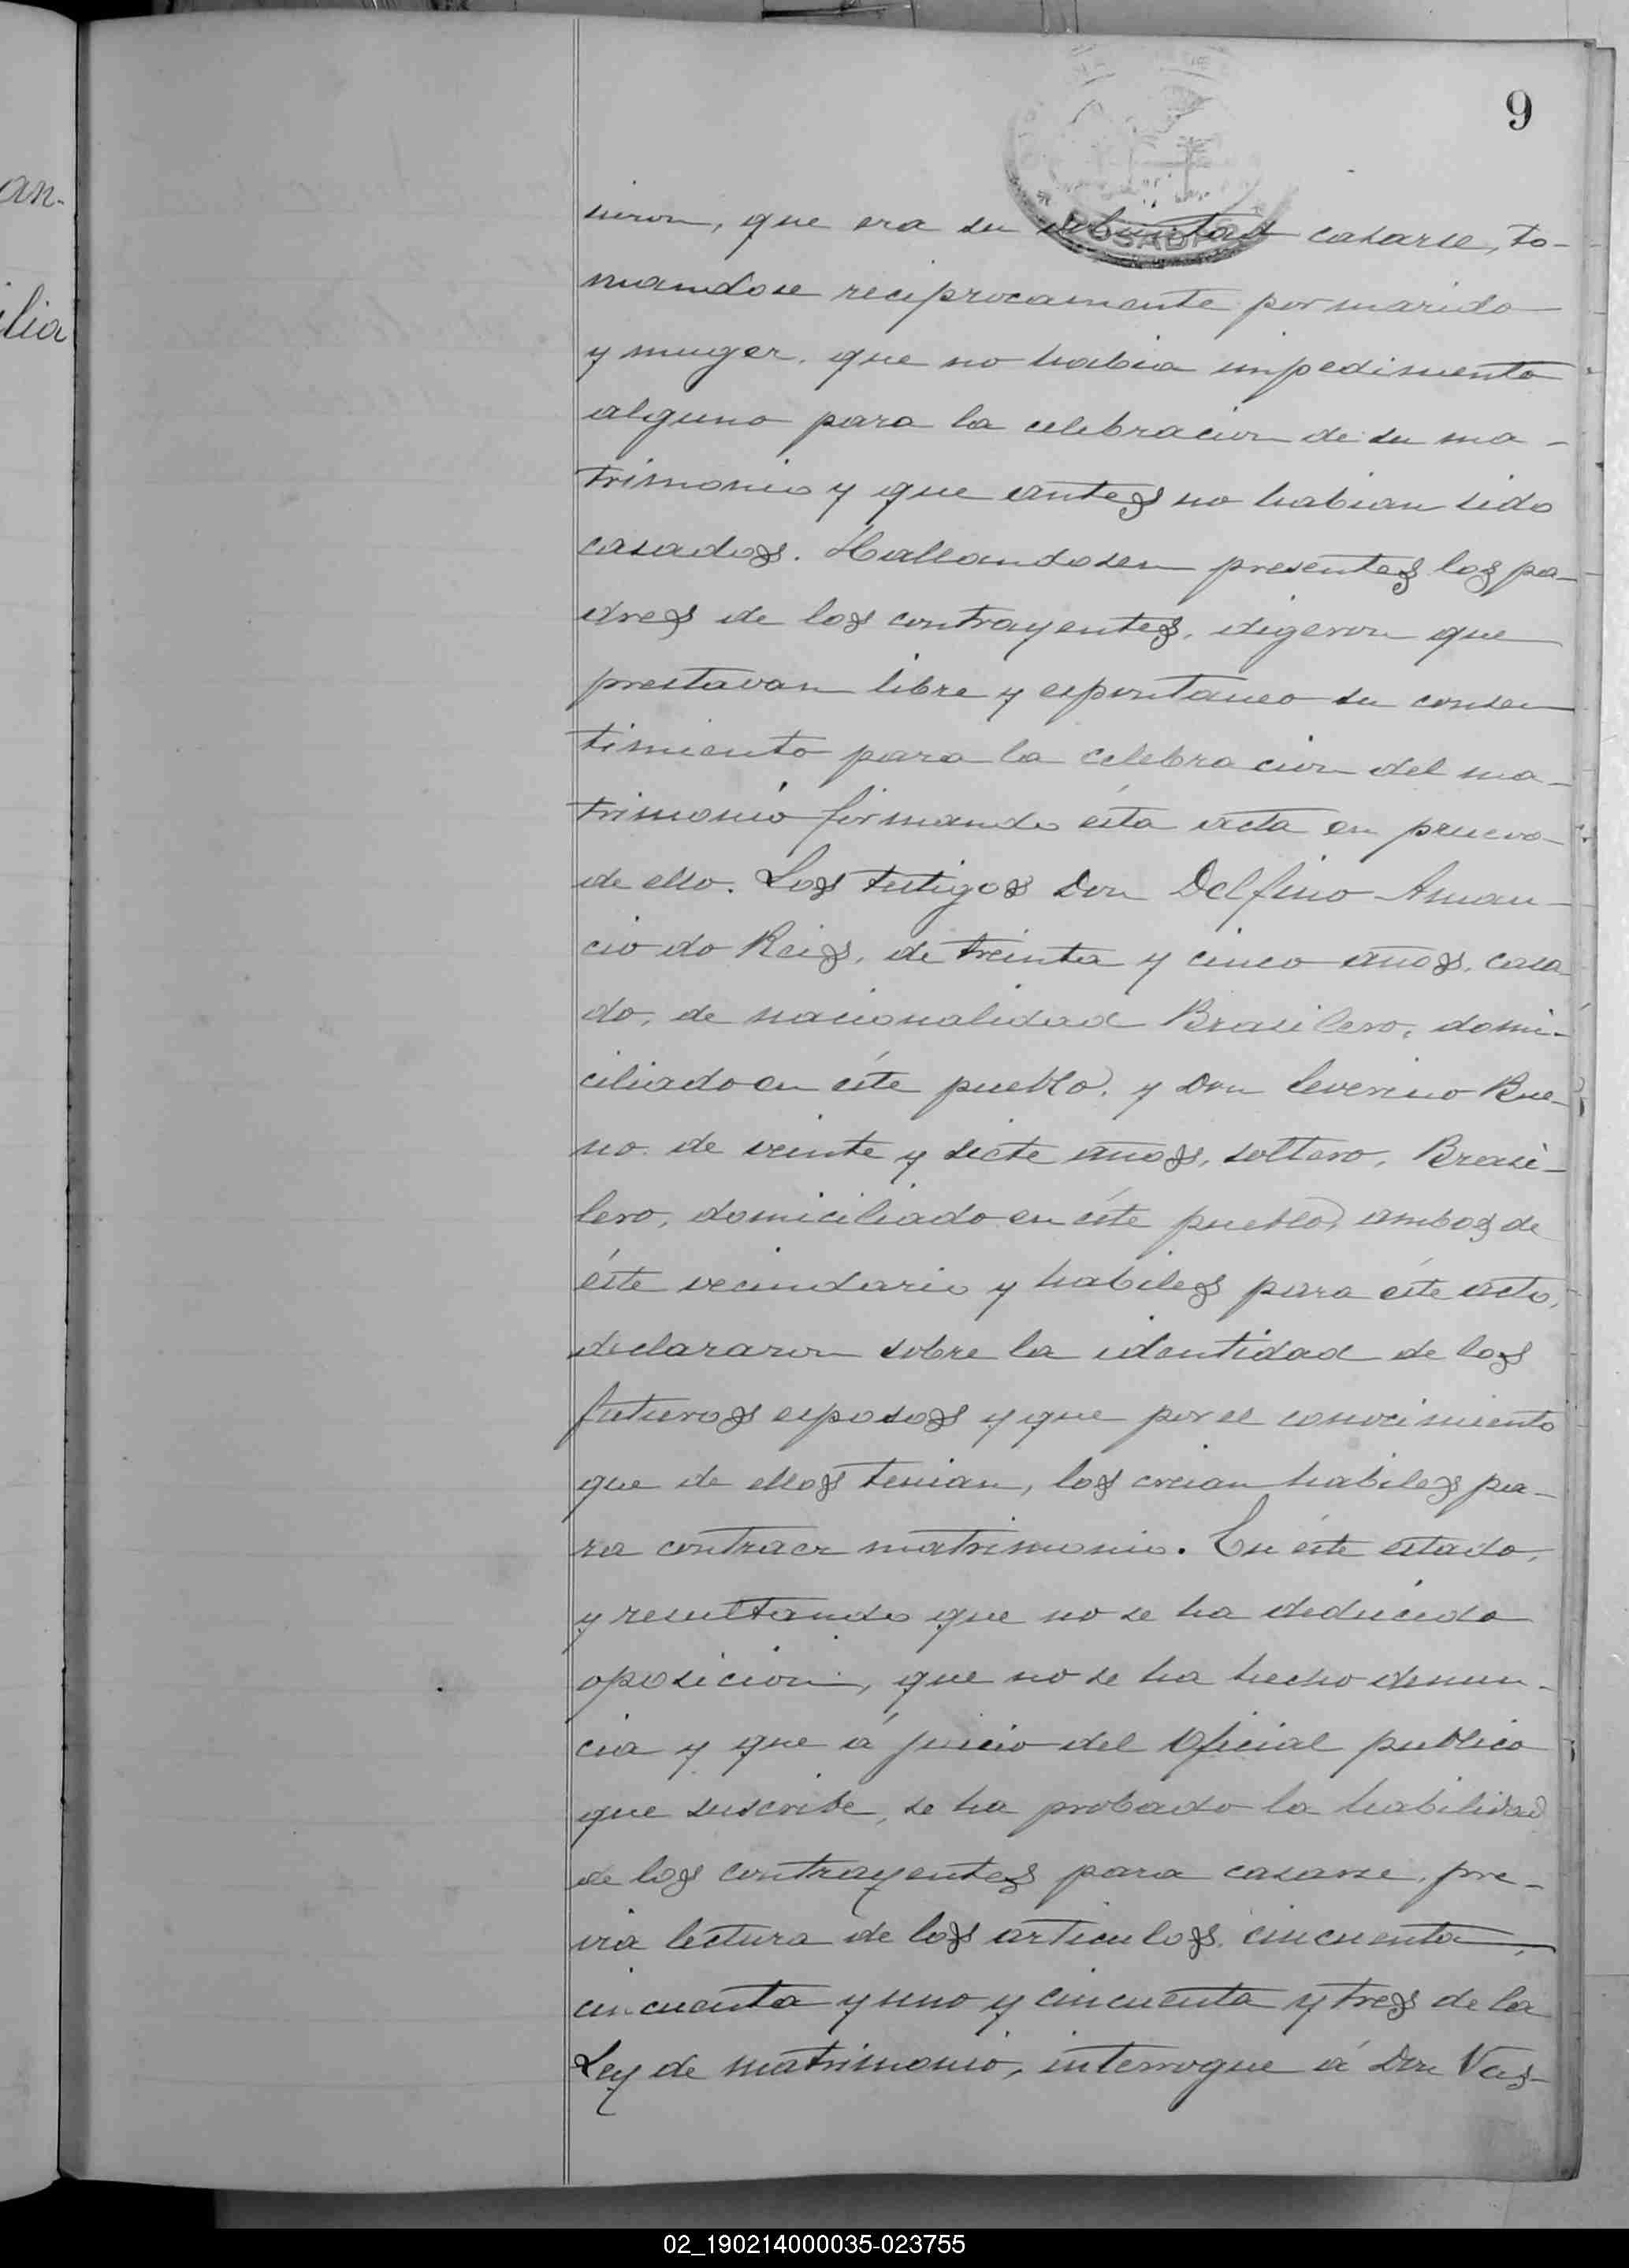 an-
ilia
9
POSADAS
nieron, que era su voluntad casarse, to-
mandose reciprocamente por marido
y muger, que no habia impedimento
alguno para la celebracion de su ma-
trimonio y que antes no habian sido
casados. Hallandosen presentes los pa-
dres de los contrayentes, digeron que
prestavan libre y espontaneo su consen
timiento para la celebracion del ma-
trimonio firmando ésta acta en prueva
de ello. Los testigos Don Delfino Aman-
cio do Reis, de treinta y cinco años, casa
do, de nacionalidad Brasilero, domi-
ciliado en éste pueblo, y Don Severino Bue-
no de veinte y siete años, soltero, Brasi-
lero, domiciliado en éste pueblo, ambos de
éste vecindario y habiles para éste acto,
declararon sobre la identidad de los
futuros esposos y que por el conocimiento
que de ellos tenian, los creian habiles pa-
ra contraer matrimonio. En éste estado,
y resultando que no se ha deducido
oposicion, que no se ha hecho denun-
cia y que á juicio del Oficial publico
que suscribe, se ha probado la habilidad
de los contrayentes para casarse, pre-
via lectura de los articulos, cincuenta,
cincuenta y uno y cincuenta y tres de la
Ley de matrimonio, interrogue á Don Vas-
02_190214000035-023755